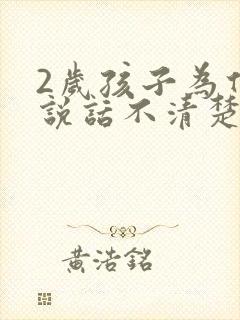 2歲孩子為
說話不清楚
黃浩銘